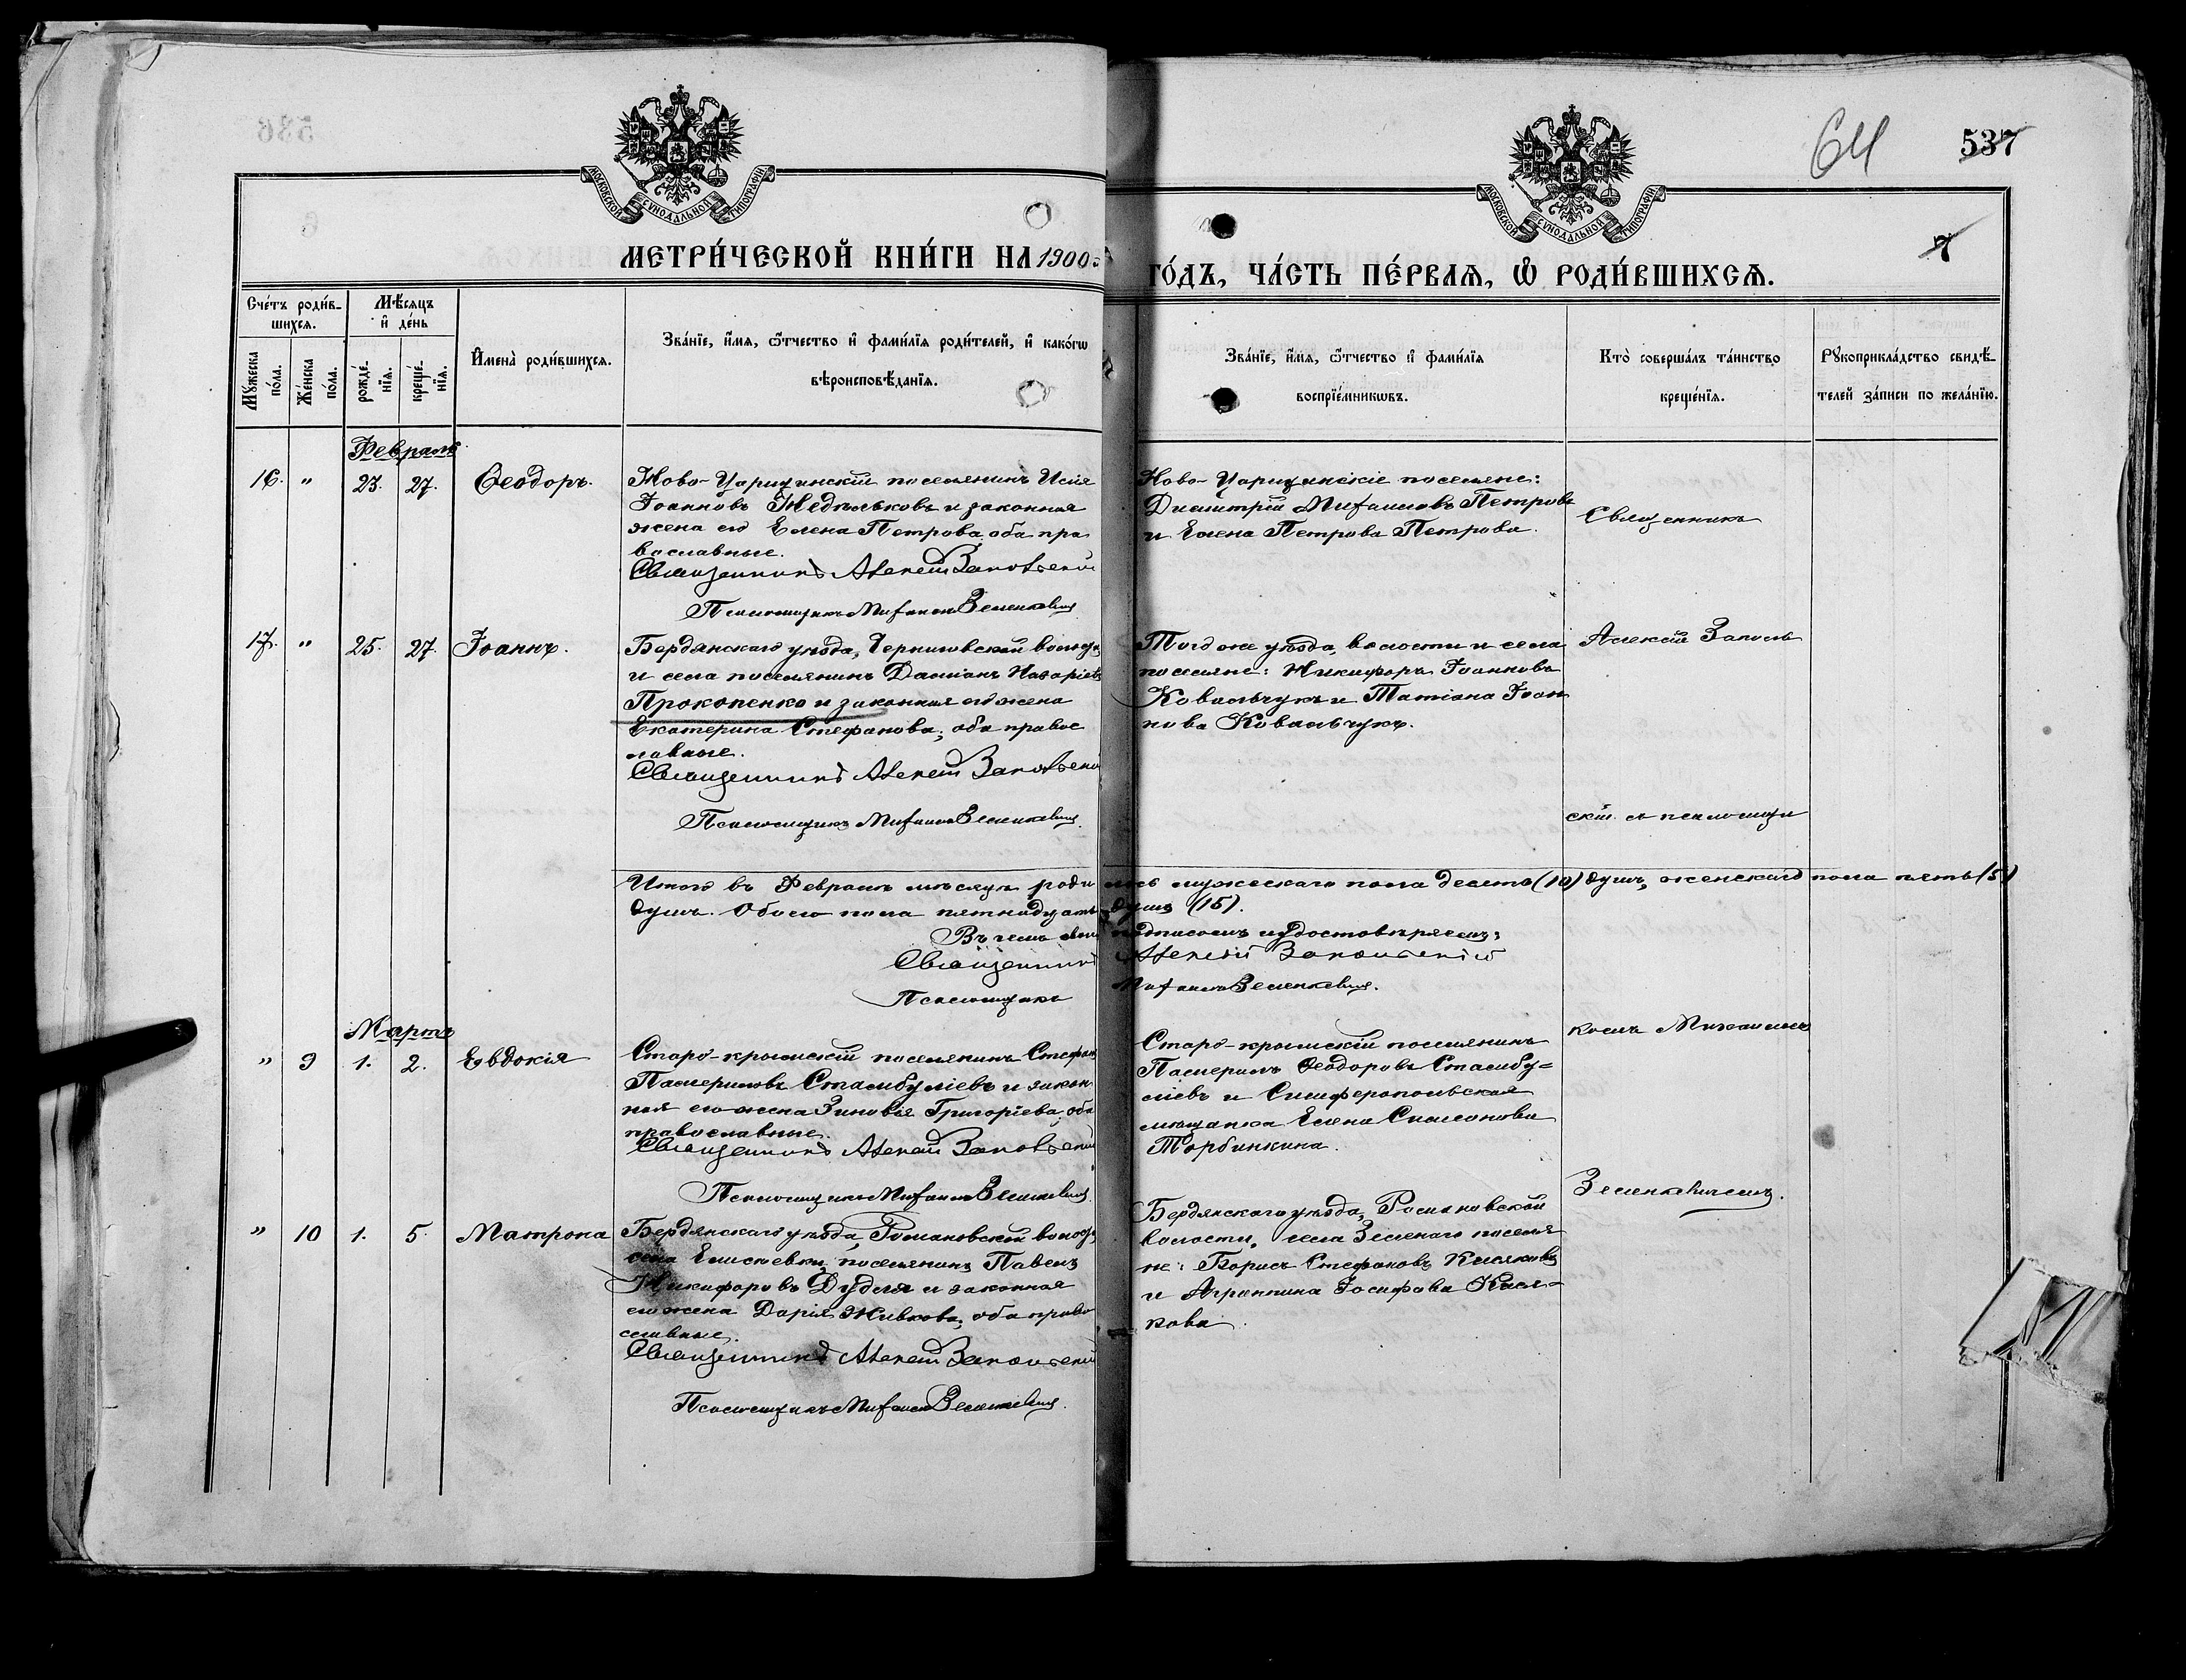 МОСКОВСКОЙ СѴНОДАЛЬНОЙ ТИПОГРАФІИ
МОСКОВСКОЙ СѴНОДАЛЬНОЙ ТИПОГРАФІИ
64
537
7
МЕТРИ́ЧЕСКОЙ КНИ́ГИ НА 1900 ГО́ДЪ, ЧА́СТЬ ПЕ́РВАѦ, Ѡ҆ РОДИ́ВШИХСѦ.
Сче́тъ роди́в-
шихсѧ.
Мѣ́сѧцъ
и҆ де́нь
Мꙋ́жеска
по́ла.
Же́нска
по́ла.
рожде́-
нїѧ.
креще́-
нїѧ.
И҆мена̀ роди́вшихсѧ.
Зва́нїе, и҆́мѧ, ѻ҆́тчество и҆ фами́лїѧ роди́телей, и҆ како́гѡ
вѣроисповѣ́данїѧ.
Зва́нїе, и҆́мѧ, ѻ҆́тчество и҆ фами́лїѧ
воспрїе́мникѡвъ.
Кто̀ соверша́лъ та́инство
креще́нїѧ.
Рꙋкоприкла́дство свидѣ́-
телей за́писи по жела́нїю.
Февраль
16. " 23. 27. Ѳеодоръ.
Ново-Царицинскій поселянинъ Исія
Іоанновъ Недѣльковъ и законная
жена его Елена Петрова, оба пра
вославные.
Священникъ Алексій Запольскій
Псаломщикъ Михаилъ Зеленкевичъ
Ново-Царицинскіе поселяне:
Димитрій Михаиловъ Петровъ
и Елена Петрова Петрова.
Священникъ
17. " 25. 27. Іоаннъ.
Бердянскаго уѣзда, Черниговской волости
и села поселянинъ Даміанъ Назаріевъ
Прокопенко и законная его жена
Екатерина Стефанова, оба правос
лавные.
Священникъ Алексій Запольскій
Псаломщикъ Михаилъ Зеленкевичъ.
Того же уѣзда, волости и села
поселяне: Никифоръ Іоанновъ
Ковальчукъ и Татіана Іоан
нова Ковальчукъ.
Алексій Заполь
скій съ псаломщи
Итого въ Февралѣ мѣсяцѣ роди лось мужескаго пола десять (10) душъ, женскаго пола пять (5)
душъ. Обоего пола пятнадцать душъ (15).
Въ чемъ своимъ подписомъ удостовѣряемъ:
Священникъ Алексій Запольскій
Псаломщикъ Михаилъ Зеленкевичъ.
Мартъ
" 9 1. 2. Евдокія
Старо-крымскій поселянинъ Стефанъ
Пасмериловъ Стамбуліевъ и закон
ная его жена Зиновія Григоріева, оба
православные.
Священникъ Алексій Запольскій
Псаломщикъ Михаилъ Зеленкевичъ.
Старо-крымскій поселянинъ
Ѳеодоровъ Стамбу=
ліевъ и Симферопольская
мѣщанка Елена Симеонова
Торбинкина.
комъ Михаиломъ
Зеленкевичемъ.
" 10 1. 5. Матрона
Бердянскаго уѣзда, Романовской волости,
села Елисеевки, поселянинъ Павелъ
Никифоровъ Дудля и законная
его жена Дарія Живкова, оба право
славные.
Священникъ Алексій Запольскій
Псаломщикъ Михаилъ Зеленкевичъ.
Бердянскаго уѣзда, Романовской
волости, села Зеленаго поселя
не: Борисъ Стефановъ Кисяковъ
и Агриппина Іосифова Кися-
кова.